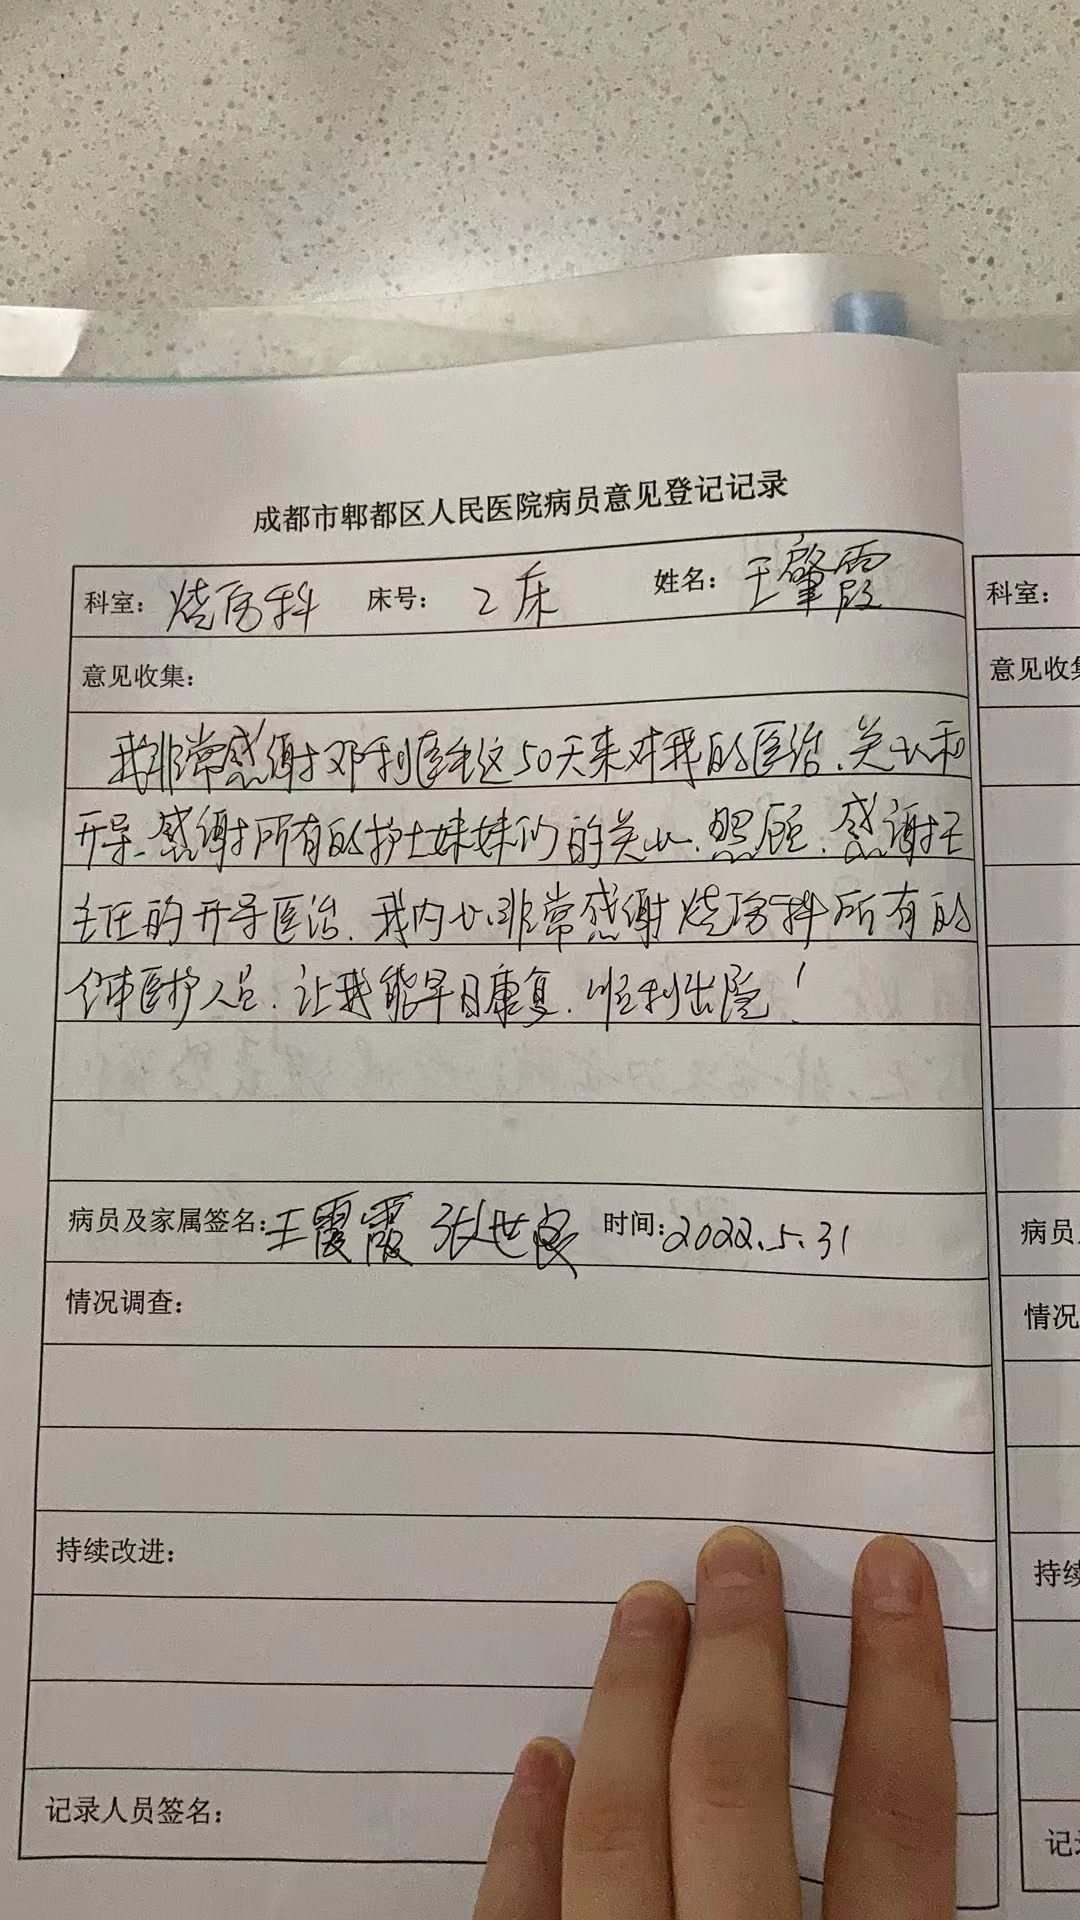 成都市郫都区人民医院病员意见登记记录
科室: 烧伤科 床号: 2床 姓名: 王肇霞
意见收集:
我非常感谢邓利医生这50天来对我的医治、关心和
开导、感谢所有的护士妹妹们的关心、照顾、感谢王
主任的开导医治、我内心非常感谢烧伤科所有的
全体医护人员、让我能早日康复、顺利出院！
病员及家属签名: 王霞霞 张世良 时间: 2022.5.31
情况调查:
持续改进:
记录人员签名:
科室:
意见收集
病员
情况
持续
记